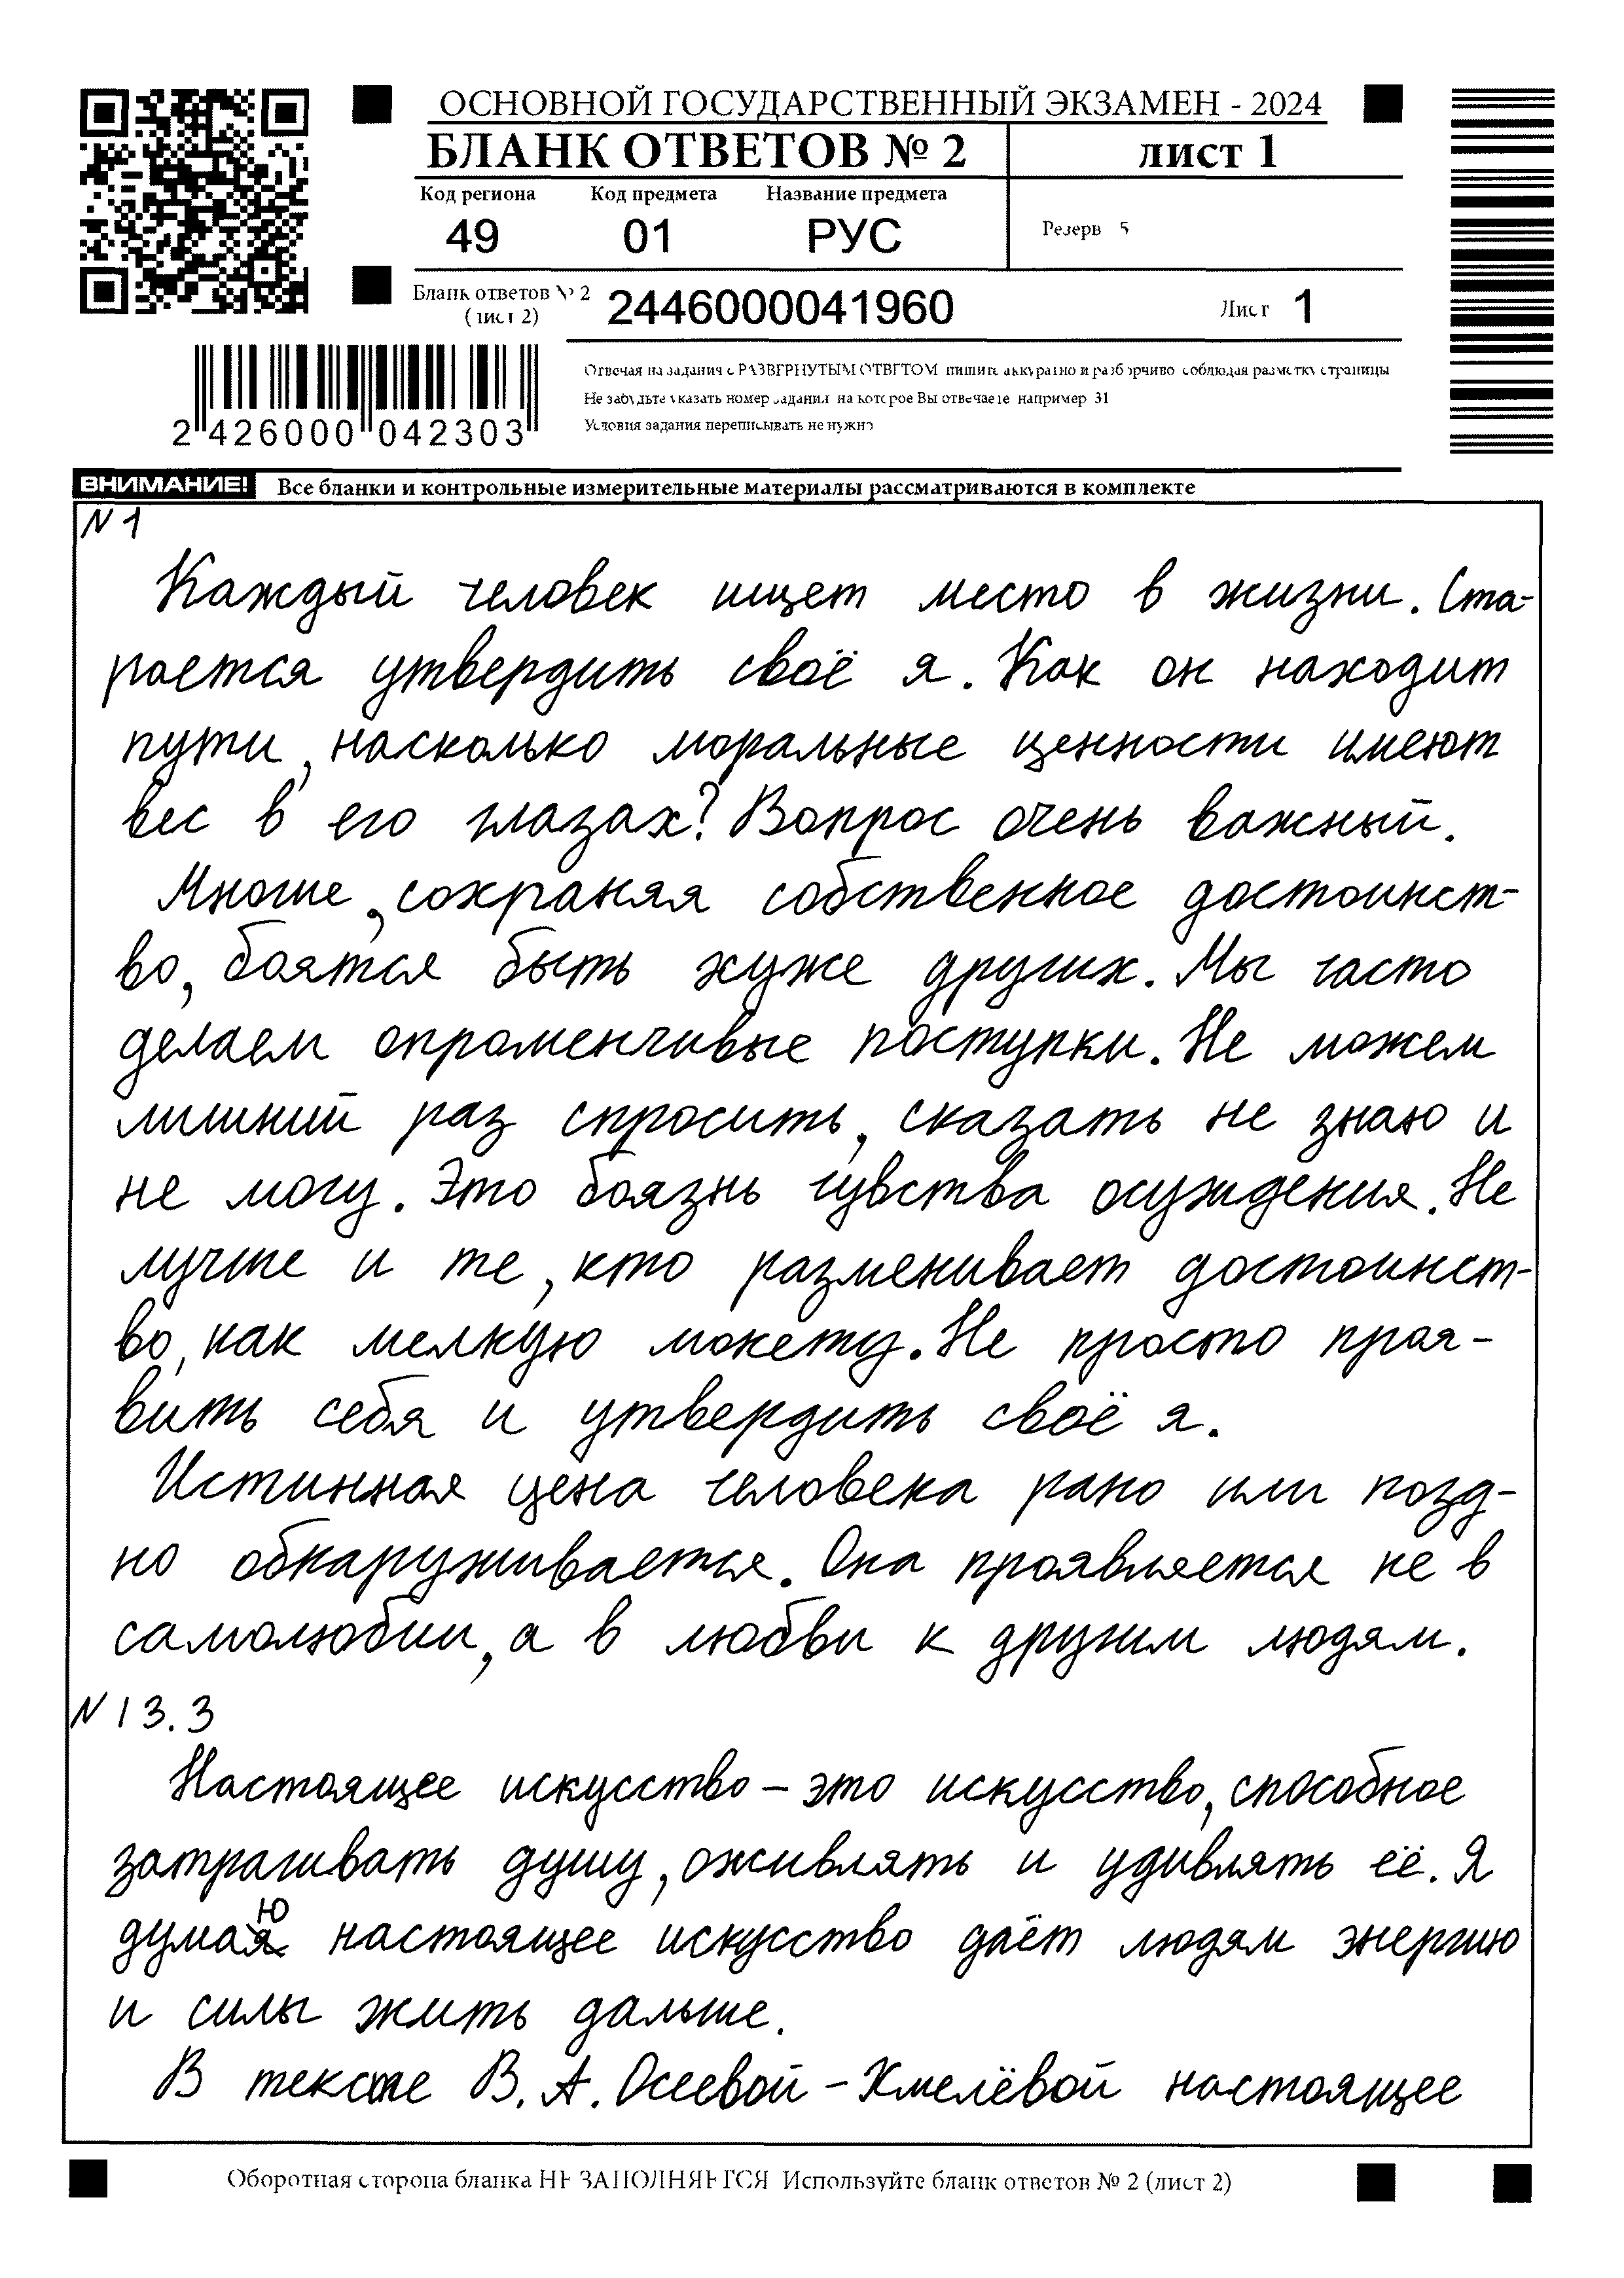 ОСНОВНОЙ ГОСУДАРСТВЕННЫЙ ЭКЗАМЕН - 2024
БЛАНК ОТВЕТОВ № 2
ЛИСТ 1
Код региона Код предмета Название предмета
49 01 РУС
Резерв 5
Бланк ответов № 2
(лист 2)
2446000041960
Лист 1
Отвечая на задания с РАЗВЕРНУТЫМ ОТВЕТОМ пишите аккуратно и разборчиво соблюдая разметку страницы
Не забудьте указать номер задания на которое Вы отвечаете например 31
Условия задания переписывать не нужно
2 426000 042303
ВНИМАНИЕ! Все бланки и контрольные измерительные материалы рассматриваются в комплекте
N 1
Каждый человек ищет место в жизни. Ста-
рается утвердить своё я. Как он находит
пути, насколько моральные ценности имеют
вес в его глазах? Вопрос очень важный.
Многие, сохраняя собственное достоинст-
во, боятся быть хуже других. Мы часто
делаем опрометчивые поступки. Не можем
лишний раз спросить, сказать не знаю и
не могу. Это боязнь чувства осуждения. Не
лучше и те, кто разменивает достоинст-
во, как мелкую монету. Не просто проя-
вить себя и утвердить своё я.
Истинная цена человека рано или позд-
но обнаруживается. Она проявляется не в
самолюбии, а в любви к другим людям.
N 13.3
Настоящее искусство – это искусство, способное
затрагивать душу, оживлять и удивлять её. Я
думаю настоящее искусство даёт людям энергию
и силы жить дальше.
В тексте В. А. Осеевой – Хмелёвой настоящее
Оборотная сторона бланка НЕ ЗАПОЛНЯЕТСЯ Используйте бланк ответов № 2 (лист 2)